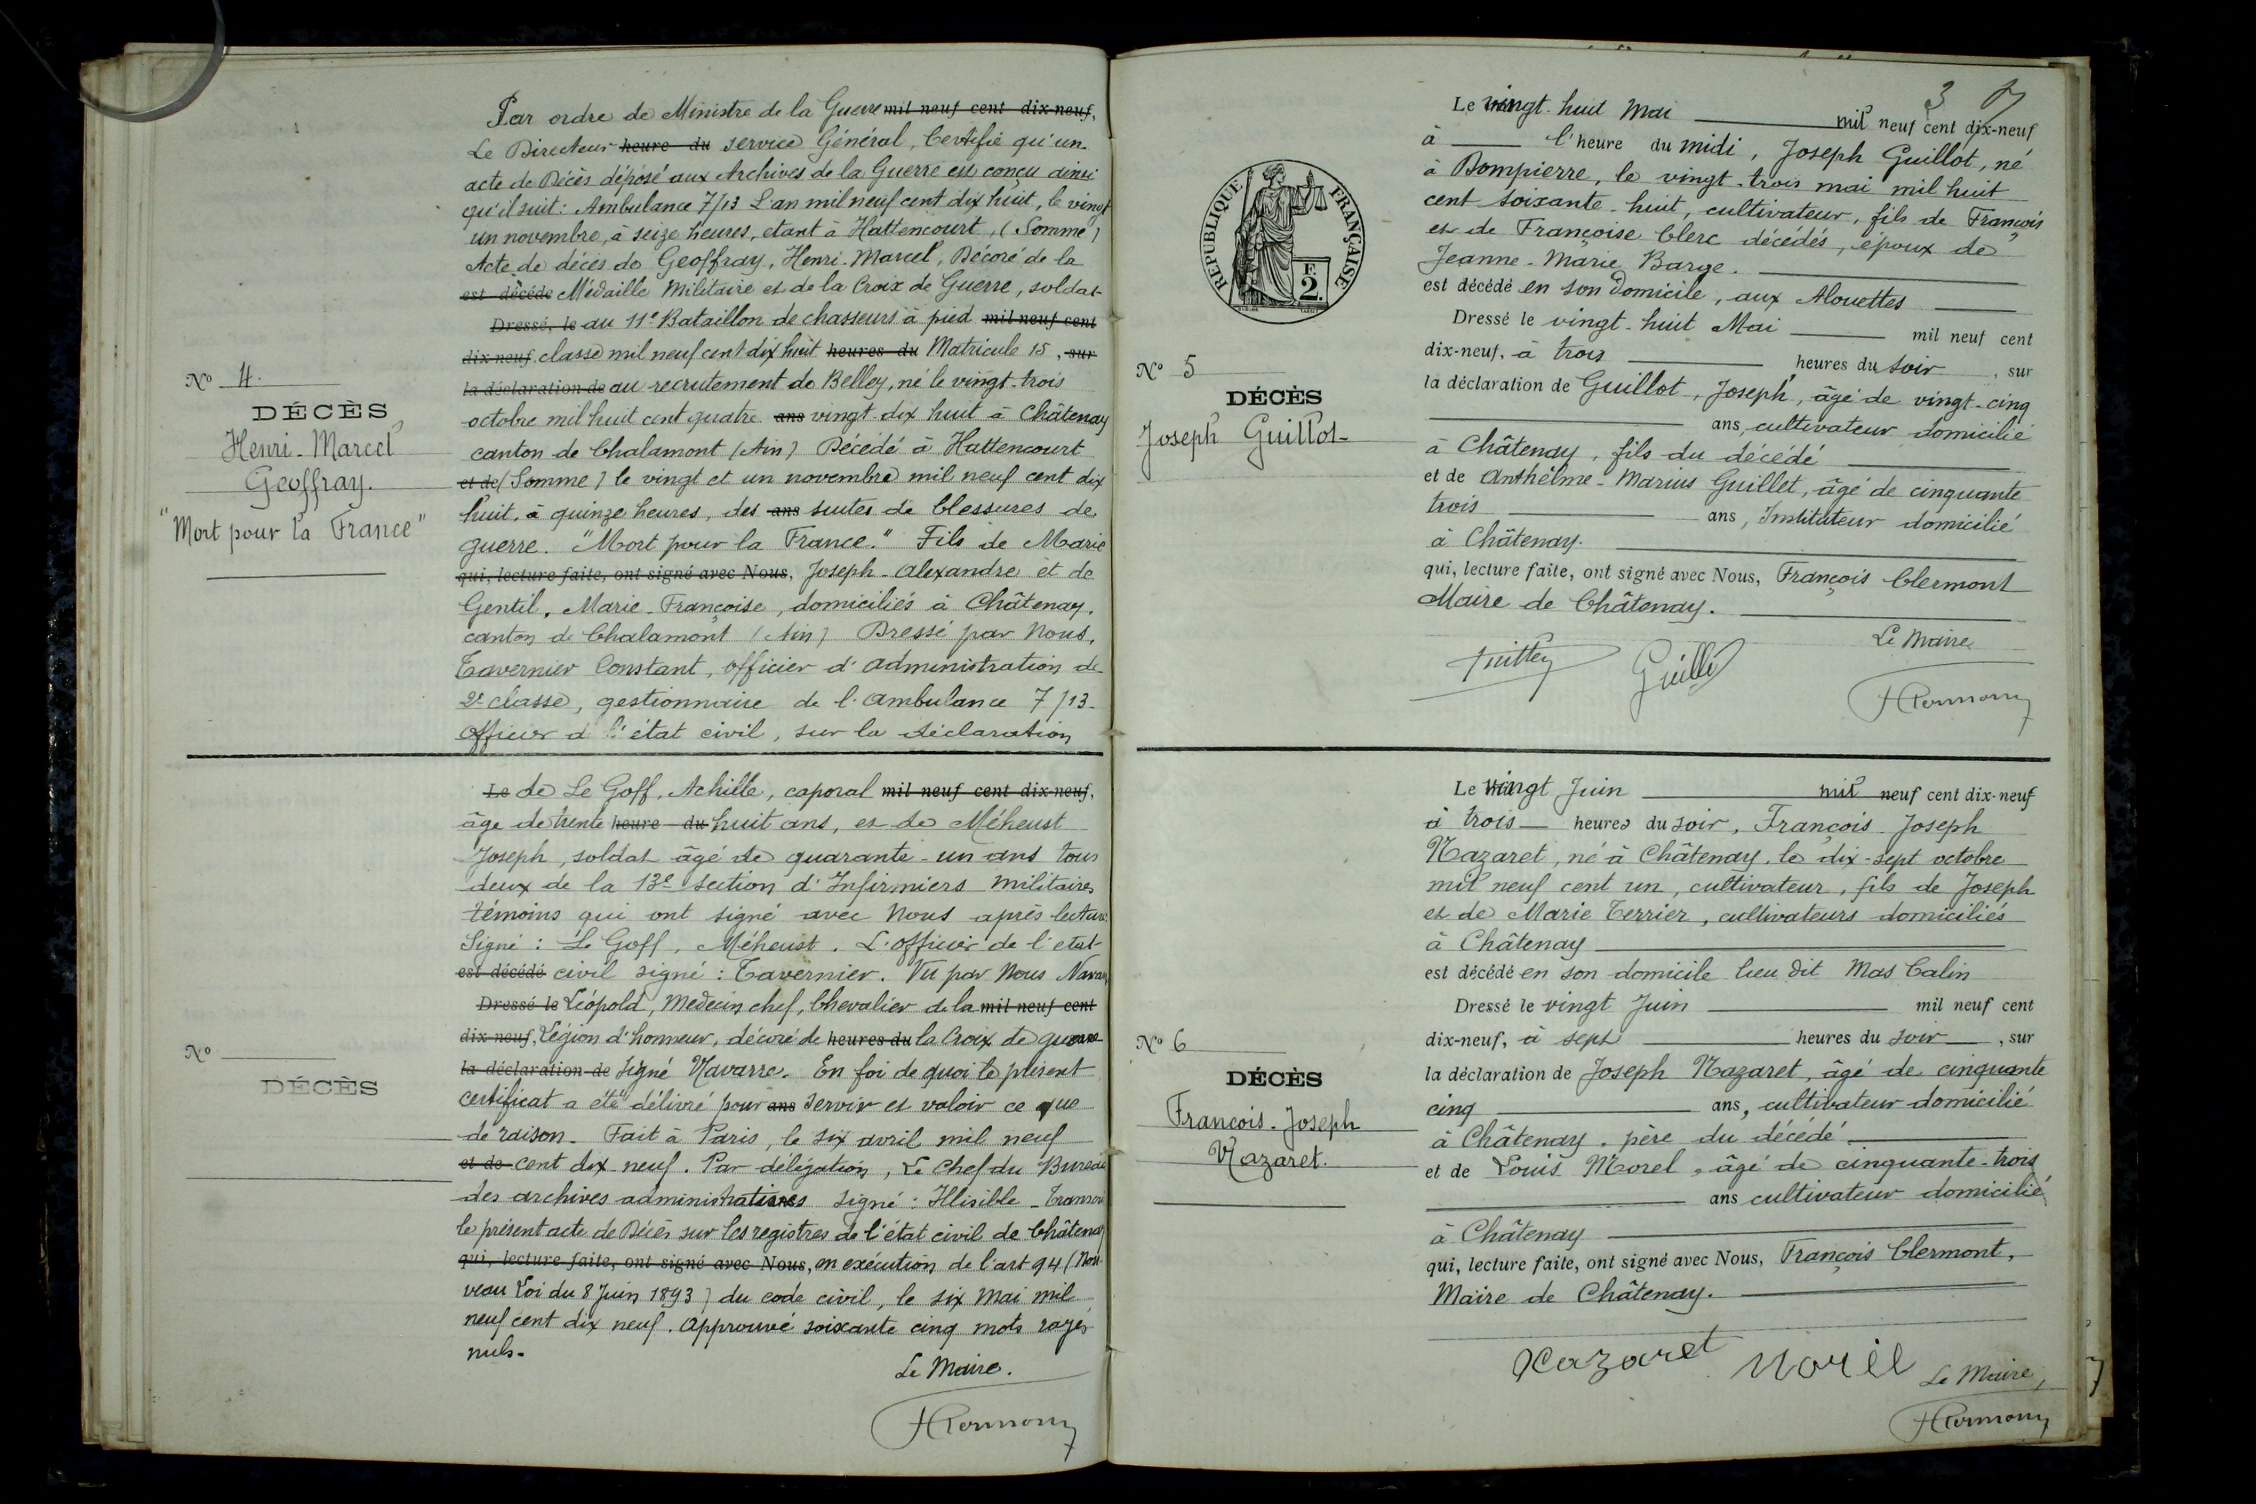 Nº 4.
DÉCÈS
Henri-Marcel
Geoffray.
"Mort pour la France"
Par ordre de Ministre de la Guerre mil neuf cent dix-neuf,
Le Directeur heure du service Général, Certifie qu'un
acte de Décès déposé aux Archives de la Guerre est conçu ainsi
qu'il suit: Ambulance 7/13 L'an mil neuf cent dix huit, le vingt
un novembre, à seize heures, etant à Hattencourt, (Somme)
Acte de décès de Geoffray, Henri-Marcel, Décoré de la
est décédé Médaille Militaire et de la Croix de Guerre, soldat
Dressé, le au 11e Bataillon de chasseurs à pied mil neuf cent
dix-neuf, classe mil neuf cent dix huit heures du Matricule 15, sur
la déclaration de au recrutement de Belley, né le vingt-trois
octobre mil huit cent quatre ans vingt dix huit à Châtenay
canton de Chalamont (Ain) Décédé à Hattencourt
et de (Somme) le vingt et un novembre mil neuf cent dix
huit, à quinze heures, des ans suites de blessures de
guerre. "Mort pour la France." Fils de Marie
qui, lecture faite, ont signé avec Nous, Joseph-Alexandre et de
Gentil, Marie-Françoise, domiciliés à Châtenay,
canton de Chalamont (Ain) Dressé par Nous,
Tavernier Constant, officier d'administration de
2e classe, gestionnaire de l'ambulance 7/13
officier d l'état civil, sur la déclaration
Nº
DÉCÈS
Le de Le Goff, Achille, caporal mil neuf cent dix-neuf,
âge de trente heure du huit ans, et de Méheust
Joseph, soldat âgé de quarante-un ans tous
deux de la 13e section d'Infirmiers militaires
témoins qui ont signé avec Nous après lecture
Signé: Le Goff, Méheust. L'officier de l'etat
est décédé civil signé: Tavernier. Vu par Nous
Dressé le Léopold, Medecin chef, Chevalier de la mil neuf cent
dix-neuf, Légion d'honneur, décoré de heures du la Croix de guerre
la déclaration de Signé Navarre. En foi de quoi le présent
certificat a été délivré pour ans servir et valoir ce que
de raison. Fait à Paris, le six avril mil neuf
et de cent dix neuf. Par délégation, Le Chef du Bureau
des archives administratives signé: Illisible
le présent acte de Décès sur les registres de l'état civil de Châtenay
qui, lecture faite, ont signé avec Nous, en exécution de l'art 94 (Nou
veau Loi du 8 Juin 1893) du code civil, le six Mai mil
neuf cent dix neuf. Approuvé soixante cinq mots rayés
nuls.
Le Maire.
3 7
Nº 5
DÉCÈS
Joseph Guillot
RÉPUBLIQUE FRANÇAISE
F. 2.
Le vingt-huit Mai mil neuf cent dix-neuf
à l'heure du midi, Joseph Guillot, né
à Dompierre, le vingt-trois mai mil huit
cent soixante-huit, cultivateur, fils de François
et de Françoise Clerc décédés, époux de
Jeanne-Marie Barge.
est décédé en son domicile, aux Alouettes
Dressé le vingt-huit Mai mil neuf cent
dix-neuf, à trois heures du soir, sur
la déclaration de Guillot, Joseph, âgé de vingt-cinq
ans, cultivateur domicilié
à Châtenay, fils du décédé
et de Anthelme-Marius Guillet, âgé de cinquante
trois ans, Instituteur domicilié
à Châtenay.
qui, lecture faite, ont signé avec Nous, François Clermont
Maire de Châtenay.
Le Maire
Nº 6
DÉCÈS
François-Joseph
Nazaret.
Le vingt Juin mil neuf cent dix-neuf
à trois heures du soir, François Joseph
Nazaret, né à Châtenay, le dix-sept octobre
mil neuf cent un, cultivateur, fils de Joseph
et de Marie Terrier, cultivateurs domiciliés
à Châtenay
est décédé en son domicile lieu dit Mas Calin
Dressé le vingt Juin mil neuf cent
dix-neuf, à sept heures du soir, sur
la déclaration de Joseph Nazaret, âgé de cinquante
cinq ans, cultivateur domicilié
à Châtenay. père du décédé
et de Louis Morel, âgé de cinquante-trois
ans cultivateur domicilié
à Châtenay
qui, lecture faite, ont signé avec Nous, François Clermont,
Maire de Châtenay.
Nazaret Morel Le Maire,